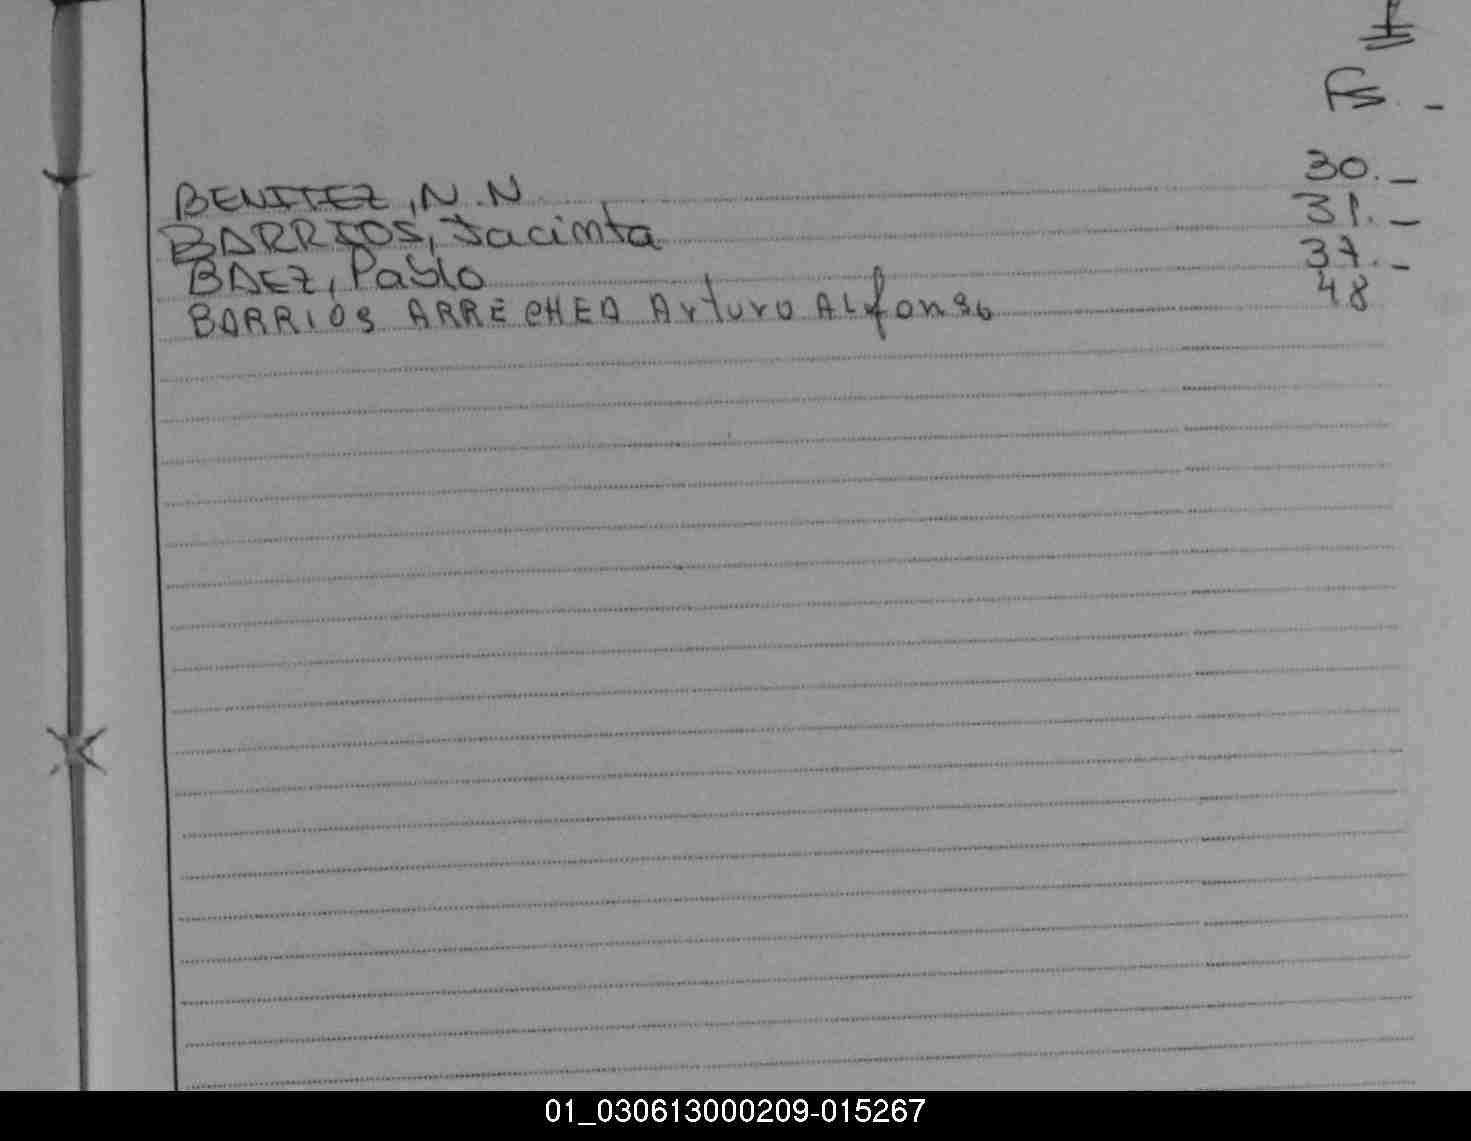 Fs. -
BENITEZ, N. N 30. -
BARRIOS, Jacinta 31. -
BAEZ, Pablo 37. -
BARRIOS ARRECHEA Arturo ALfonso 48
01_030613000209-015267